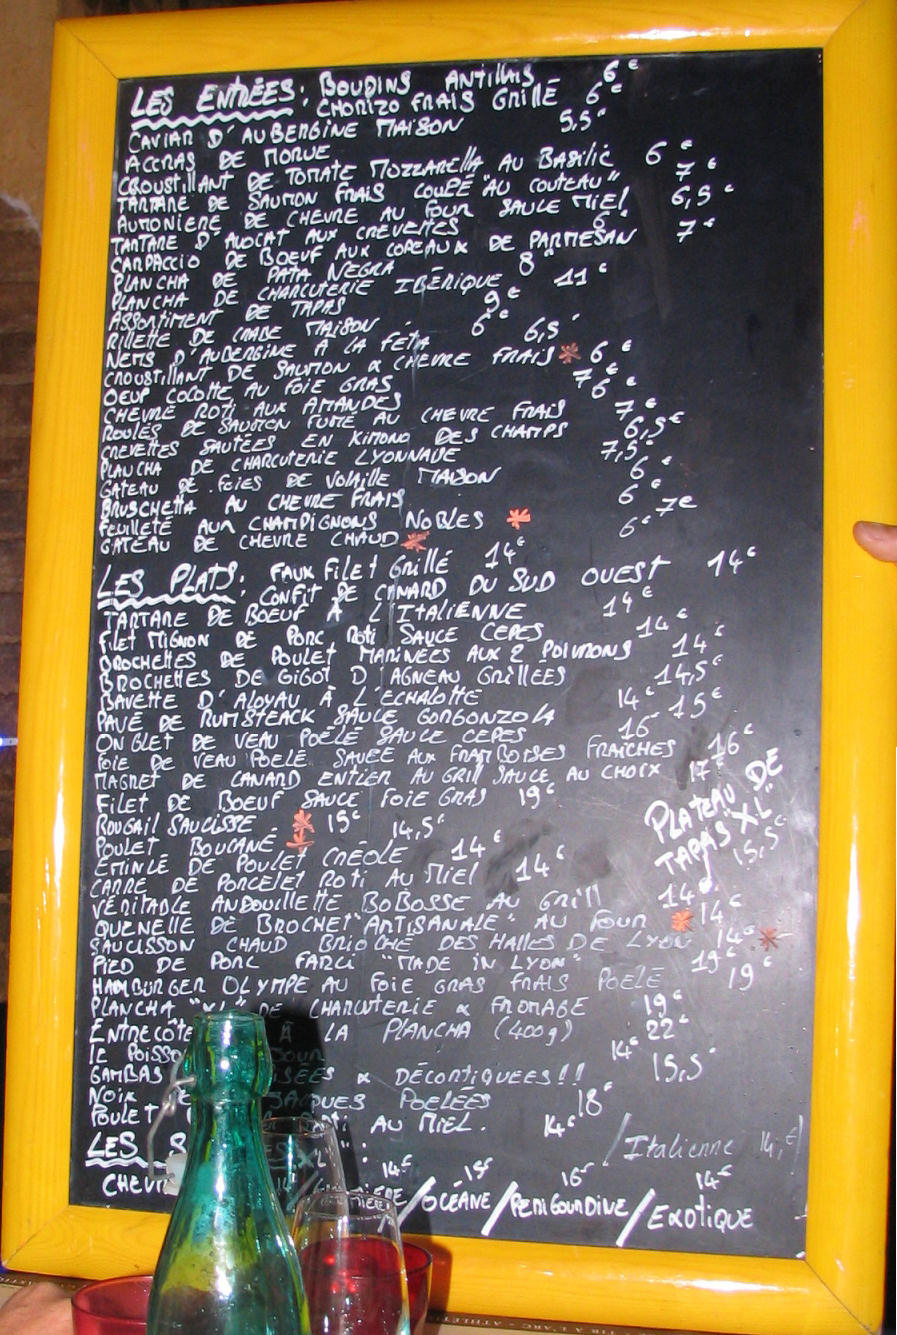 LES ENTRÉES : BOUDINS ANTILLAIS 6€
CHORIZO FRAIS GRILLÉ 6€
CAVIAR D'AUBERGINE MAISON 5,5€
ACCRAS DE MORUE
CROUSTILLANT DE TOMATE MOZZARELLA AU BASILIC 6€
TARTARE DE SAUMON FRAIS COUPÉ "AU COUTEAU" 7€
AUMONIERE DE CHEVRE AU FOUR SAUCE MIEL 6,5€
TARTARE D'AVOCAT AUX CREVETTES 6€
CARPACCIO DE BOEUF AUX COPEAUX DE PARMESAN 7€
PLANCHA DE PATA NEGRA 8€
PLANCHA DE CHARCUTERIE IBÉRIQUE 11€
ASSORTIMENT DE TAPAS 9€
RILLETTE DE CRABE MAISON 6€
NEMS D'AUBERGINE À LA FÉTA 6,5€
CROUSTILLANT DE SAUMON & CHEVRE FRAIS * 6€
OEUF COCOTTE AU FOIE GRAS 7€
CHEVRE ROTI AUX AMANDES 6€
ROULÉS DE SAUMON FUMÉ AU CHEVRE FRAIS 7€
CREVETTES SAUTÉES EN KIMONO DES CHAMPS 6,5€
PLANCHA DE CHARCUTERIE LYONNAISE 7,5€
GATEAU DE FOIES DE VOLAILLE MAISON 6€
BRUSCHETTA AU CHEVRE FRAIS 6€
FEUILLETÉ AUX CHAMPIGNONS NOBLES * 7€
GATEAU DE CHEVRE CHAUD * 6€
LES PLATS : FAUX FILET GRILLÉ 14€
CONFIT DE CANARD DU SUD OUEST 14€
TARTARE DE BOEUF À L'ITALIENNE 14€
FILET MIGNON DE PORC ROTI SAUCE CEPES 14€
BROCHETTES DE POULET MARINÉES AUX 2 POIVRONS 14€
BROCHETTES DE GIGOT D'AGNEAU GRILLÉES 14,5€
BAVETTE D'ALOYAU À L'ECHALOTTE 14€
PAVÉ DE RUMSTEACK SAUCE GORGONZOLA 15€
ONGLET DE VEAU POÊLÉ SAUCE CEPES 16€
FOIE DE VEAU POELÉ SAUCE AUX FRAMBOISES FRAICHES 16€
MAGRET DE CANARD ENTIER AU GRILL SAUCE AU CHOIX 17€
FILET DE BOEUF SAUCE FOIE GRAS 19€
PLATEAU DE TAPAS "XL" 15,5€
ROUGAIL SAUCISSE * 15€
POULET BOUCANÉ * 14,5€
EMINCÉ DE POULET CRÉOLE 14€
CARRE DE PORCELET ROTI AU MIEL 14€
VERITABLE ANDOUILLETTE BOBOSSE AU GRILL 14€
QUENELLE DE BROCHET "ARTISANALE" AU FOUR * 14€
SAUCISSON CHAUD BRIOCHÉ DES HALLES DE LYON 14€ *
PIED DE PORC FARCI "MADE IN LYON" 19€
HAMBURGER OLYMPE AU FOIE GRAS FRAIS POELÉ 19€
PLANCHA "XL" DE CHARCUTERIE & FROMAGE 19€
ENTRECÔTE À LA PLANCHA (400g) 22€
LE POISSO JOUR 14€
GAMBAS & DÉCORTIQUEES!! 15,5€
NOIX JACQUES POELÉES 18€
POULET ROTI AU MIEL. 14€
LES S
/Italienne 14,€/
14€ 15€ 16€ 14€
CHEVR /OCÉANE/PERIGOURDINE/EXOTIQUE